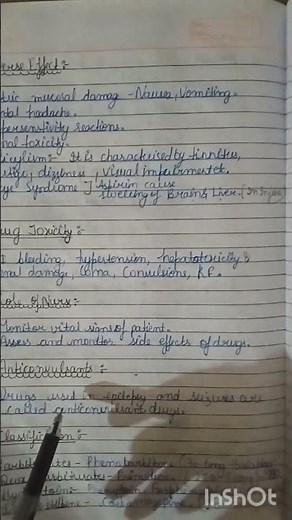 verse Effect:-
tric mucosal damag - Nausea, Vomiting.
ntal headache.
persensitivity reactions.
nal toxicity.
licylism:- It is characterised by tinnitus,
rtigo, dizziness, visual impairment etc.
ye Syndrome → Aspirin cause
swelling of Brain & Liver. (In
ug Toxicity:-
I bleeding, hypertension, hepatotoxicity,
enal damage, coma, Convulsions, R.F.
ole of Nurse
Monitor vital signs of patient.
Assess and monitor side effects of drugs.
Anticonvulsants:-
Drugs used in epilepsy and seizures are
called anticonvulsant drugs.
Classification:-
arbiturates - Phenobarbitone
InShOt